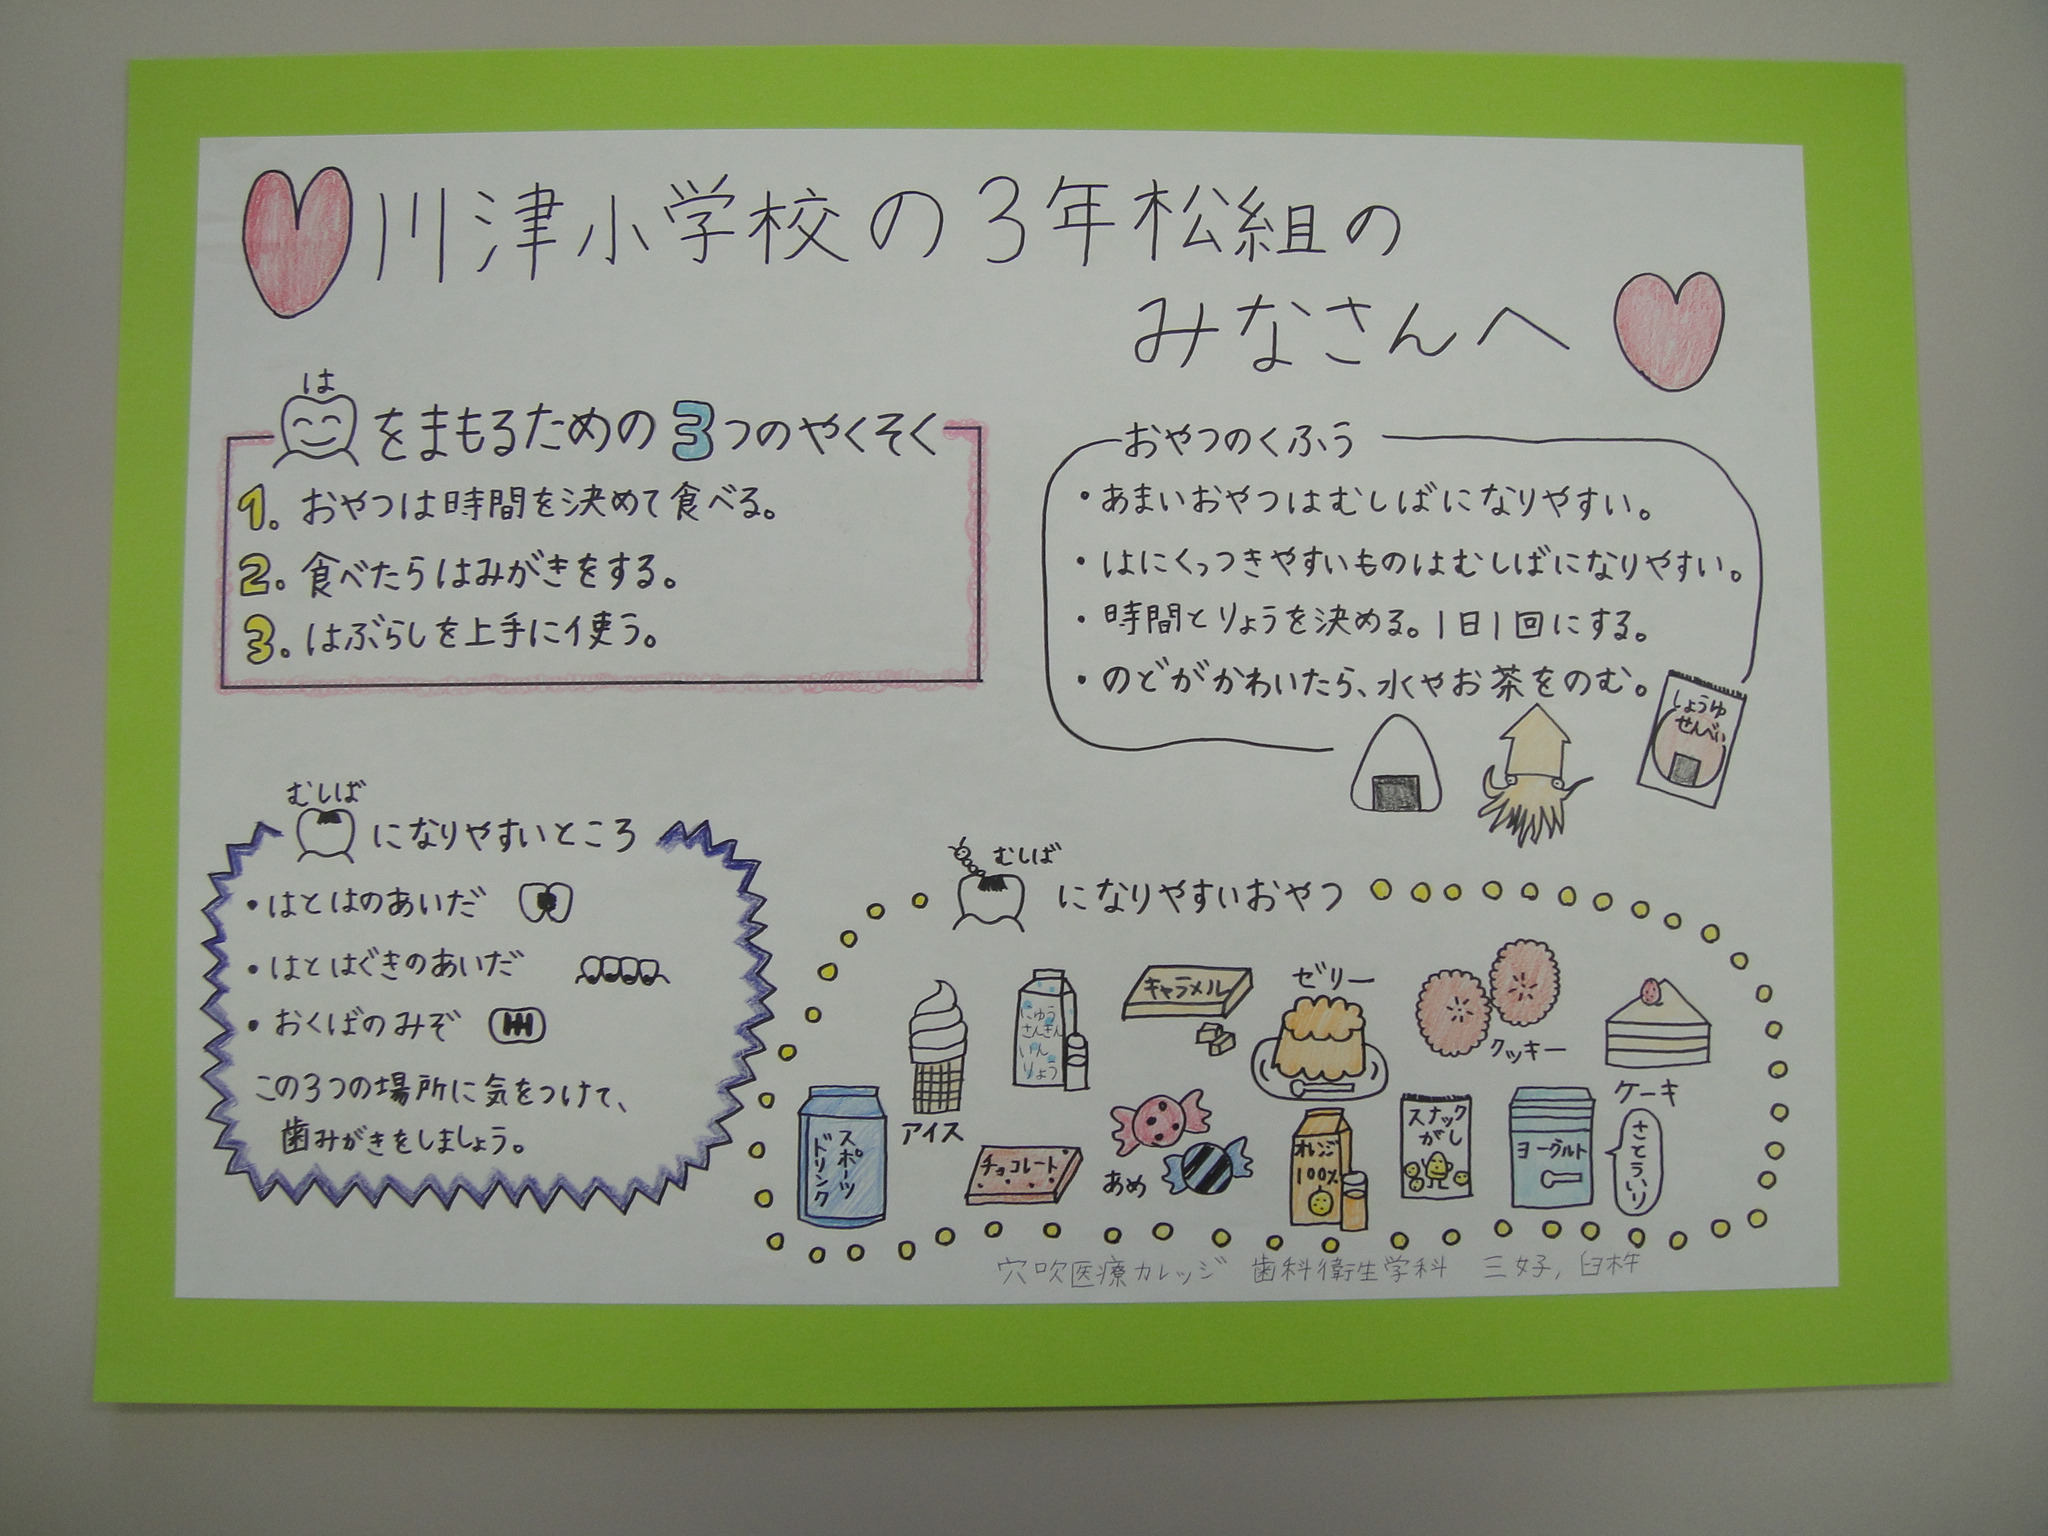 川津小学校の3年松組の
みなさんへ
は
をまもるための3つのやくそく
1. おやつは時間を決めて食べる。
2. 食べたらはみがきをする。
3. はぶらしを上手に使う。
おやつのくふう
・あまいおやつはむしばになりやすい。
・はにくっつきやすいものはむしばになりやすい。
・時間とりょうを決める。1日1回にする。
・のどがかわいたら、水やお茶をのむ。
しょうゆ
せんべい
むしば
になりやすいところ
・はとはのあいだ
・はとはぐきのあいだ
・おくばのみぞ
この3つの場所に気をつけて、
歯みがきをしましょう。
むしば
になりやすいおやつ
アイス
にゅう
さんきん
いん
りょう
キャラメル
ゼリー
クッキー
ケーキ
スポーツ
ドリンク
チョコレート
あめ
オレンジ
100%
スナック
がし
ヨーグルト
さとう入り
穴吹医療カレッジ 歯科衛生学科 三好, 臼杵